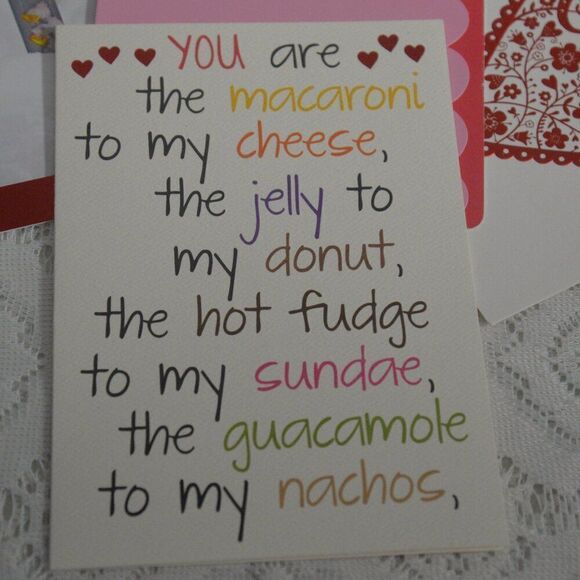 YOU are
the macaroni
to my cheese,
the jelly to
my donut,
the hot fudge
to my sundae,
the guacamole
to my nachos,